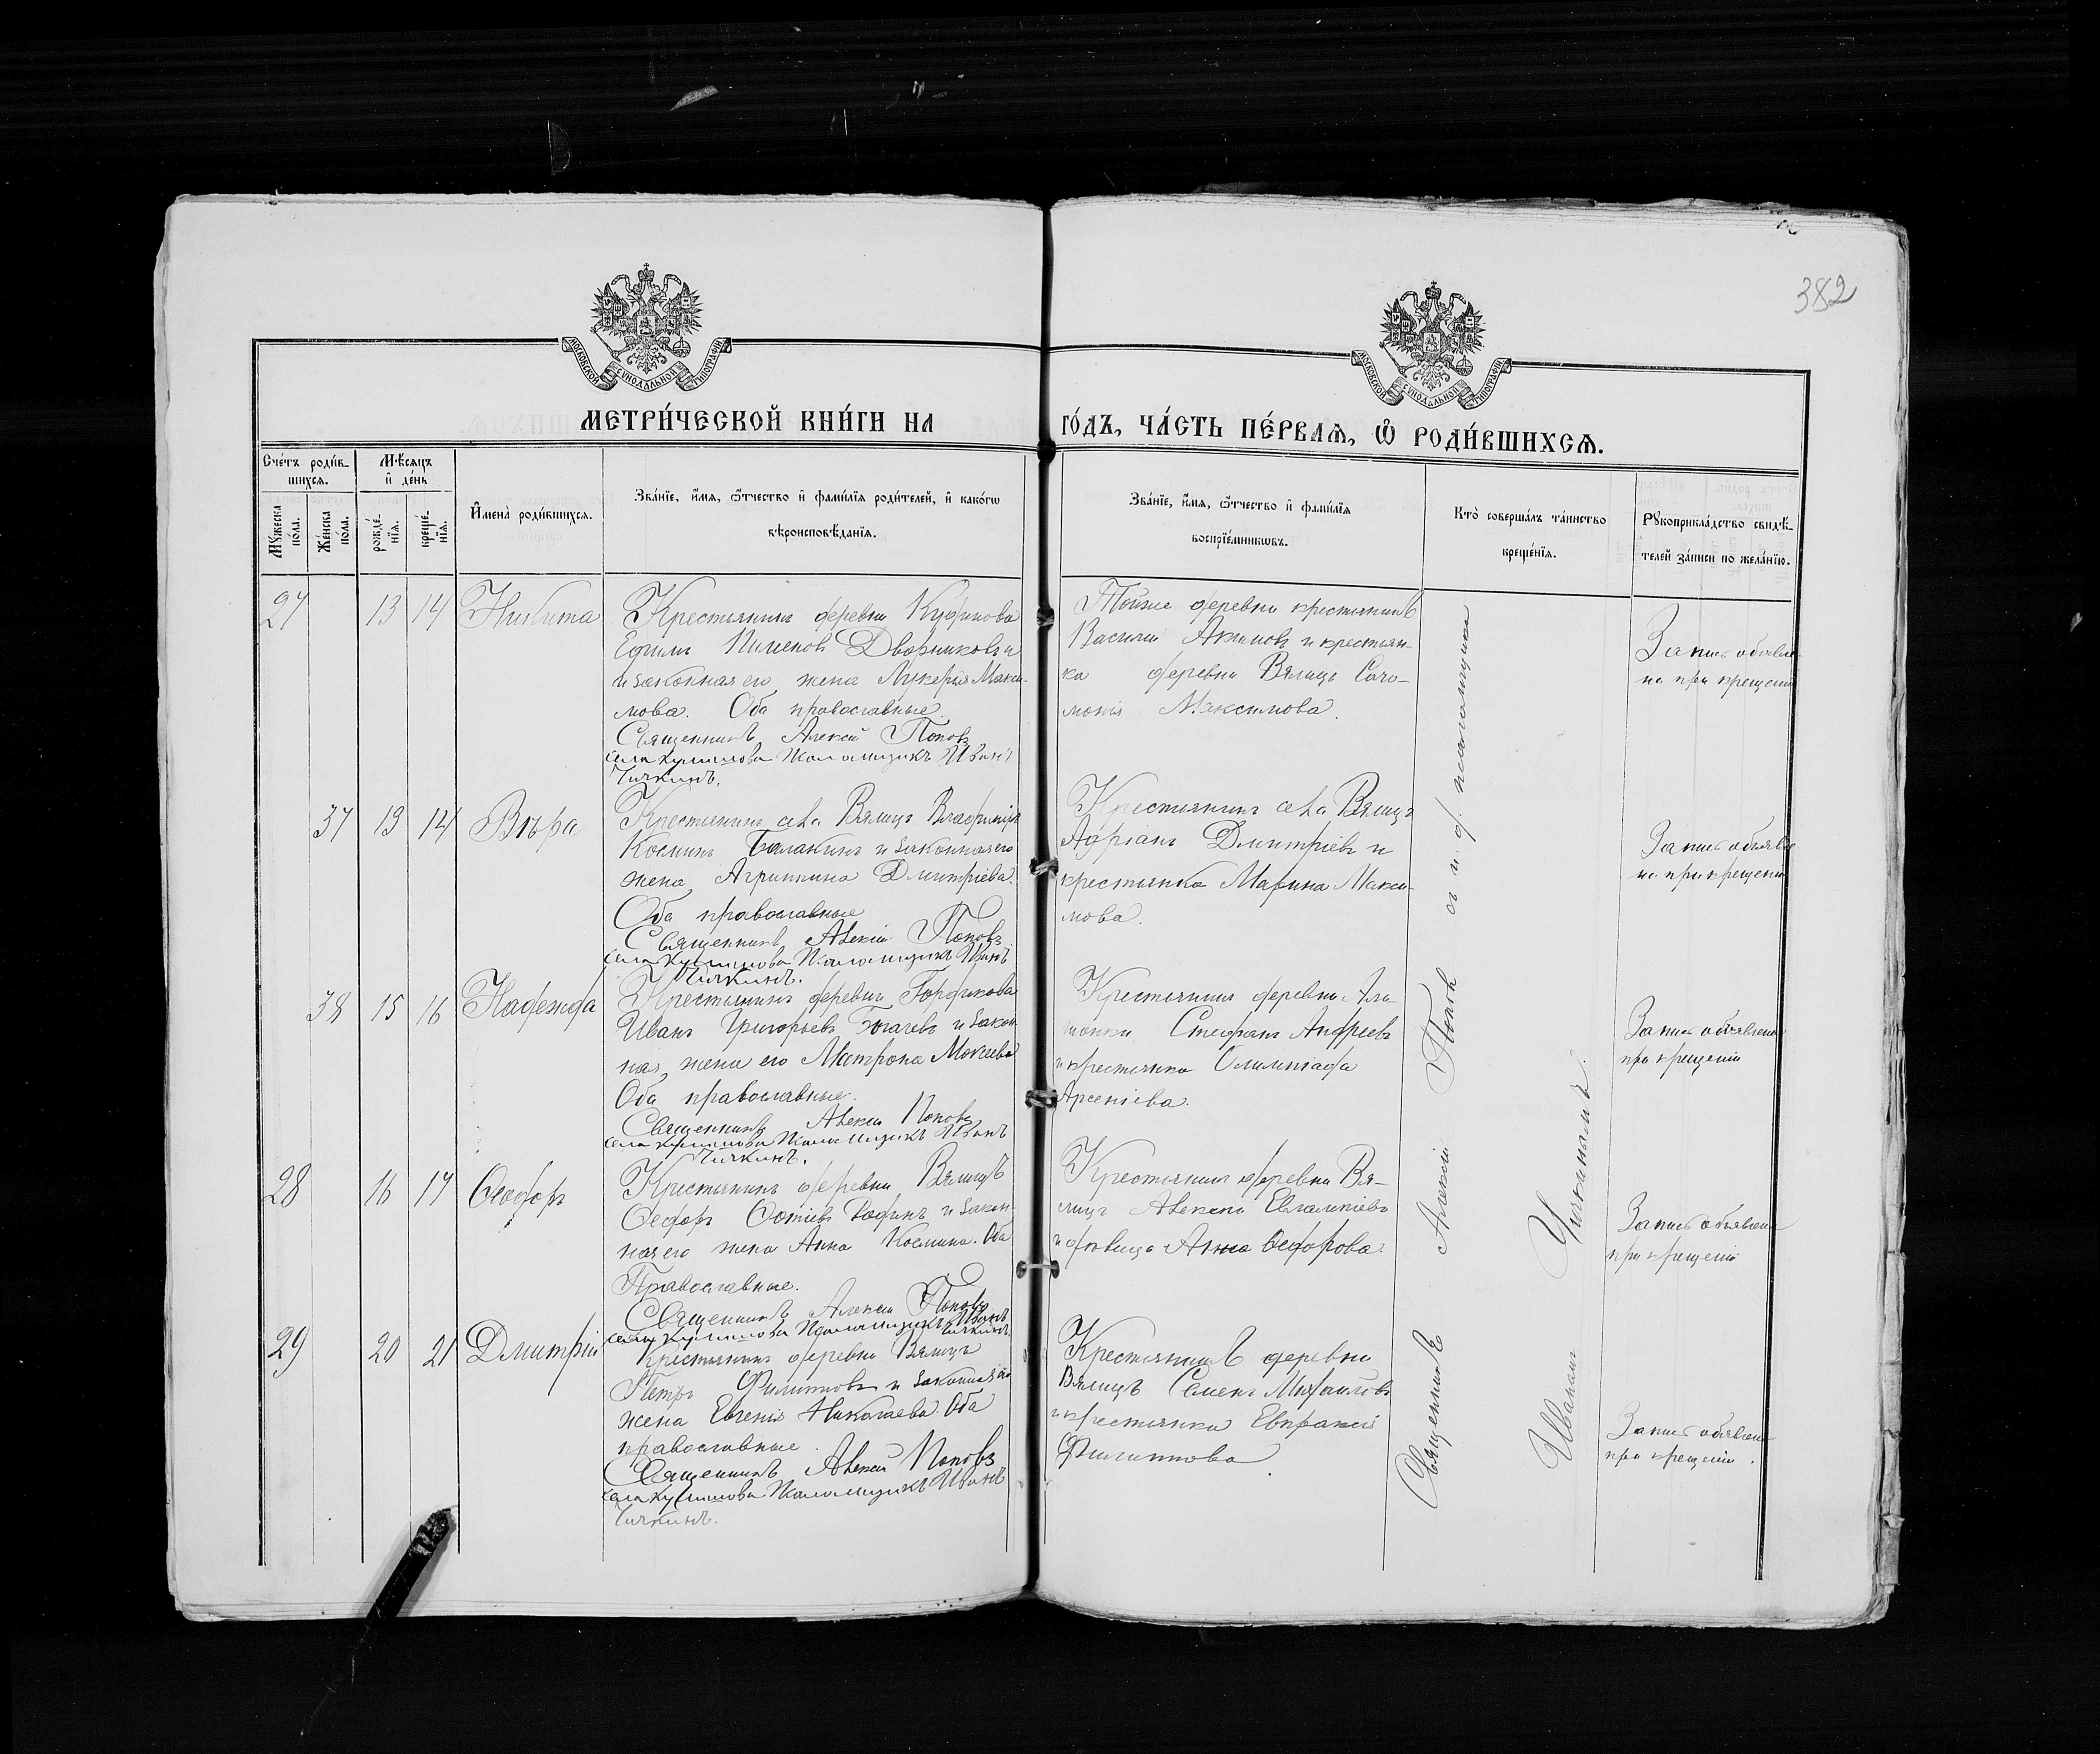 382
МОСКОВСКОЙ СУНОДАЛЬНОЙ ТИПОГРАФІИ
МОСКОВСКОЙ СУНОДАЛЬНОЙ ТИПОГРАФІИ
МЕТРИ́ЧЕСКОЙ КНИ́ГИ НА ГО́ДЪ, ЧА́СТЬ ПЕ́РВАѦ, Ѽ РОДИ́ВШИХСѦ.
Сче́тъ роди́в-
шихся.
Мѣ́сяцъ
и҆ де́нь
Мꙋ́жеска
по́ла.
Же́нска
по́ла.
рожде́-
нїя.
креще́-
нїя.
И҆мена̀ роди́вшихся.
Зва́нїе, и҆́мя, ѻ҆́тчество и҆ фами́лїя роди́телей, и҆ како́гѡ
вѣроисповѣ́данїя.
Зва́нїе, и҆́мя, ѻ҆́тчество и҆ фами́лїя
воспрїе́мникѡвъ.
Кто̀ соверша́лъ та́инство
креще́нїя.
Рꙋкоприкла́дство свидѣ́-
телей за́писи по жела́нїю.
27 13 14 Никита
Крестьянинъ деревни
Ефимъ Пименовъ Дворниковъ и
и законная его жена Лукерья Макси-
мова. Оба православные
Священникъ Алексій Поповъ
села Псаломщикъ Иванъ
Чичкинъ.
Тойже деревни крестьянинъ
Василій Акимовъ и крестьян-
ка деревни Вялицъ Соло-
монія Максимова.
Запись объявле-
на при крещеніи
37 13 14 Вѣра
Крестьянинъ села Вялицъ Владиміръ
Косминъ Балакинъ и законная его
жена Агриппина Дмитріева.
Оба православные
Священникъ Алексій Поповъ
села Псаломщикъ Иванъ
Чичкинъ.
Крестьянинъ села Вялицъ
Адріанъ Дмитріевъ и
крестьянка Марина Макси-
мова.
Запись объявле-
на при крещеніи
38 15 16 Надежда
Крестьянинъ деревни Бордукова
Иванъ Григорьевъ Богачевъ и закон-
ная жена его Матрона Мокеева
Оба православные.
Священникъ Алексій Поповъ
села Псаломщикъ Иванъ
Чичкинъ.
Крестьянинъ деревни
Стефанъ Андреевъ
и крестьянка Олимпіада
Арсеніева.
Запись объявлена
при крещеніи
28 16 17 Ѳеодоръ
Крестьянинъ деревни Вялицъ
Ѳедоръ Фотіевъ и закон-
ная его жена Анна Космина. Оба
Православные.
Священникъ Алексій Поповъ
села Псаломщикъ Иванъ
Чичкинъ.
Крестьянинъ деревни Вя-
лицъ Алексій Евлампіевъ
и дѣвица Анна Ѳедорова.
Запись объявлена
при крещеніи
29 20 21 Дмитрій
Крестьянинъ деревни Вялицъ
Петръ Филипповъ и законная его
жена Евгенія Николаева. Оба
православные.
Священникъ Алексій Поповъ
села Псаломщикъ Иванъ
Чичкинъ.
Крестьянинъ деревни
Вялицъ Семенъ Михайловъ
и крестьянка Евпраксія
Филиппова
Запись объявлена
при крещеніи.
Священникъ Алексій Поповъ съ и. д. псаломщика
Иваномъ Чичкинымъ.